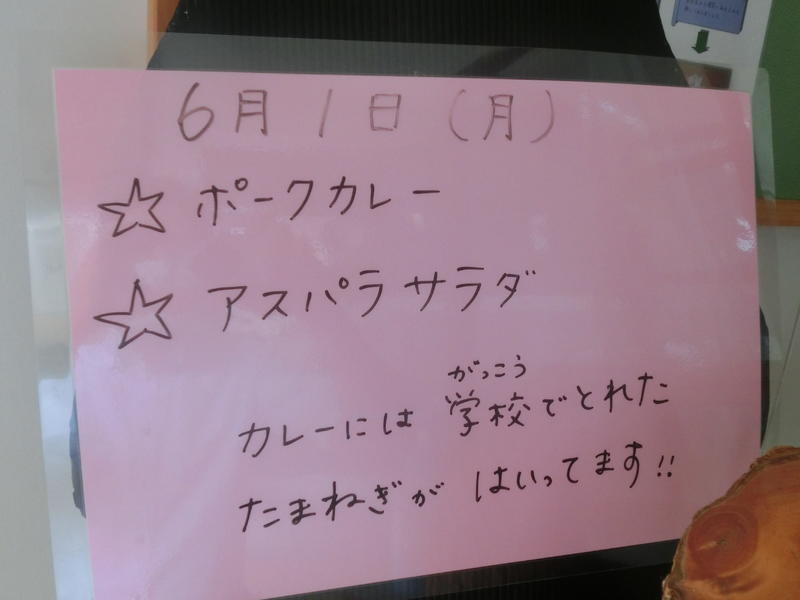 6月1日(月)
☆ ポークカレー
☆ アスパラサラダ
がっこう
カレーには 学校でとれた
たまねぎが はいってます!!